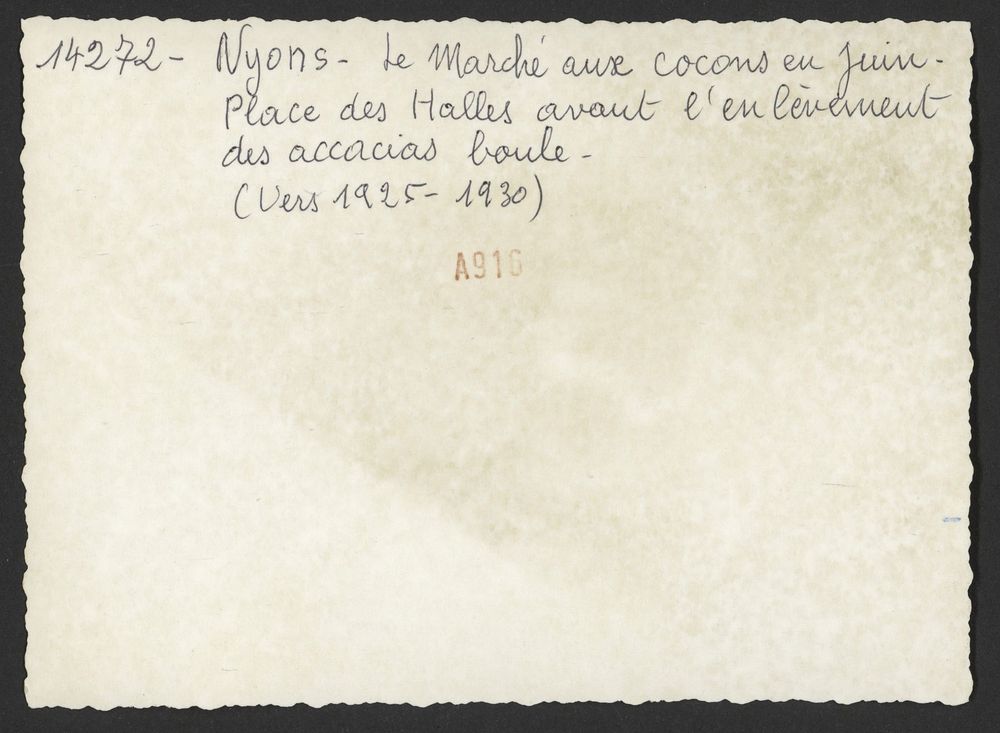 14272 - Nyons - Le Marché aux cocons en Juin -
Place des Halles avant l'enlèvement
des accacias boule -
(Vers 1925 - 1930)
A916